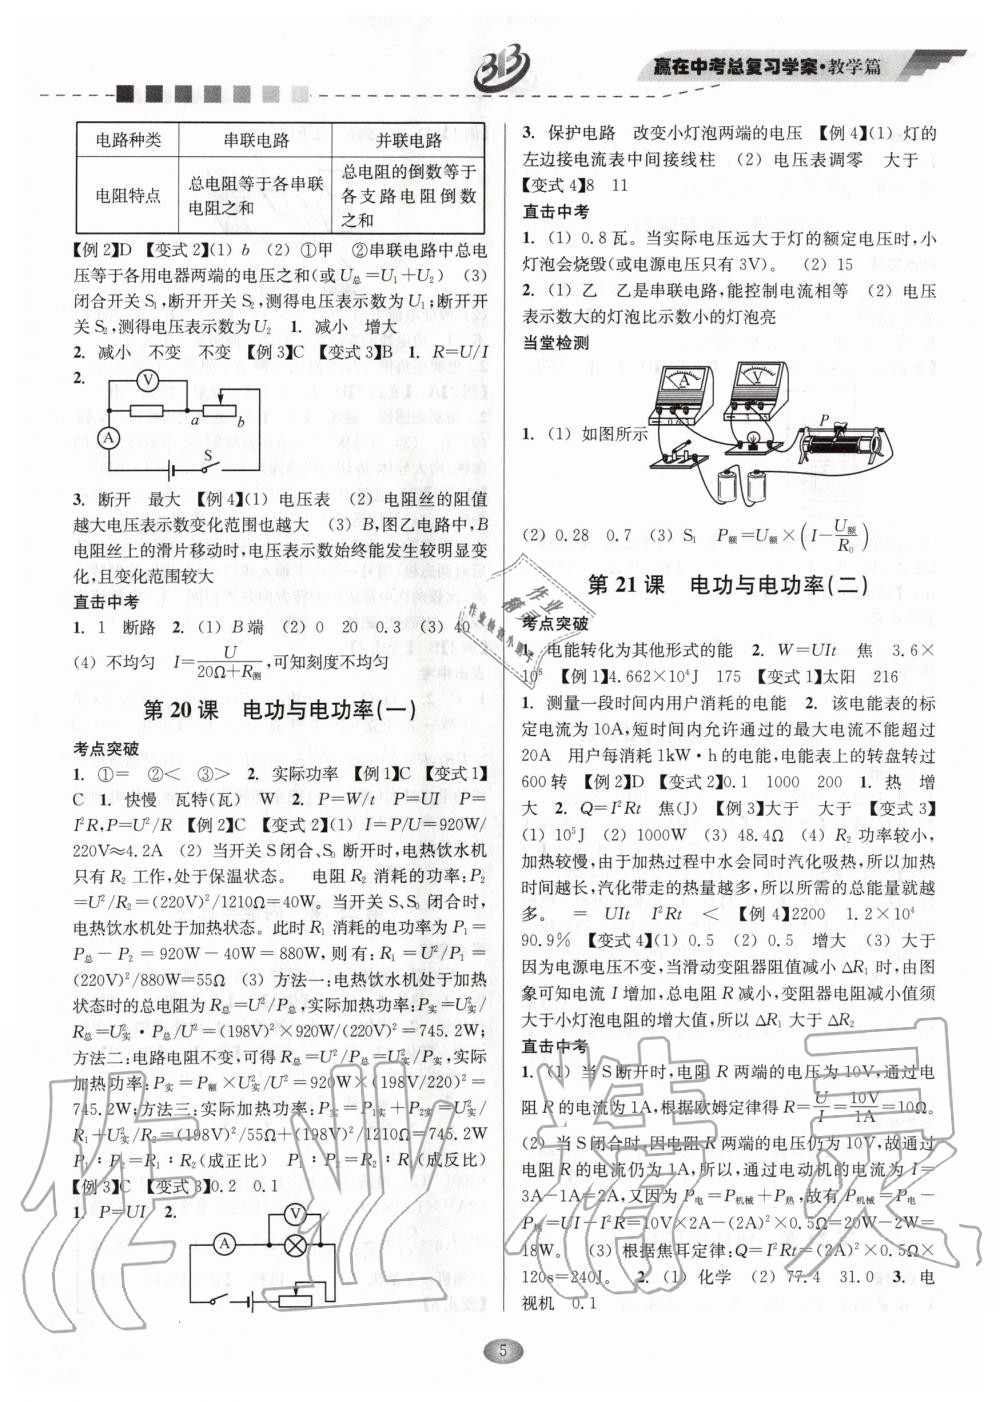 3B
赢在中考总复习学案·教学篇
电路种类 串联电路 并联电路
电阻特点 总电阻等于各串联电阻之和 总电阻的倒数等于各支路电阻倒数之和
【例2】D 【变式2】(1) b (2) ①甲 ②串联电路中总电
压等于各用电器两端的电压之和(或U总=U₁+U₂) (3)
闭合开关S₁,断开开关S₂,测得电压表示数为U₁;断开开
关S₂,测得电压表示数为U₂ 1. 减小 增大
2. 减小 不变 不变 【例3】C 【变式3】B 1. R=U/I
2.
V
a b
A
S
3. 断开 最大 【例4】(1) 电压表 (2) 电阻丝的阻值
越大电压表示数变化范围也越大 (3) B,图乙电路中,B
电阻丝上的滑片移动时,电压表示数始终能发生较明显变
化,且变化范围较大
直击中考
1. 1 断路 2. (1) B端 (2) 0 20 0.3 (3) 40
(4) 不均匀 I=U/(20Ω+R测),可知刻度不均匀
第20课 电功与电功率(一)
考点突破
1. ①= ②< ③> 2. 实际功率 【例1】C 【变式1】
C 1. 快慢 瓦特(瓦) W 2. P=W/t P=UI P=
I²R,P=U²/R 【例2】C 【变式2】(1) I=P/U=920W/
220V≈4.2A (2) 当开关S闭合、S₀断开时,电热饮水机
只有R₂工作,处于保温状态。 电阻R₂消耗的功率:P₂
=U²/R₂=(220V)²/1210Ω=40W。当开关S、S₀闭合时,
电热饮水机处于加热状态。此时R₁消耗的功率为P₁=
P总-P₂=920W-40W=880W,则有:R₁=U²/P₁=
(220V)²/880W=55Ω (3) 方法一:电热饮水机处于加热
状态时的总电阻为R总=U²/P总,实际加热功率:P实=U实²/
R总=U实²·P总/U²=(198V)²×920W/(220V)²=745.2W;
方法二:电路电阻不变,可得R总=U²/P总=U实²/P实,实际
加热功率:P实=P额×U实²/U²=920W×(198V/220)²=
745.2W;方法三:实际加热功率:P实=P₁实+P₂实=U实²/
R₁+U实²/R₂=(198V)²/55Ω+(198V)²/1210Ω=745.2W
P₁∶P₂=R₁∶R₂(成正比) P₁∶P₂=R₂∶R₁(成反比)
【例3】C 【变式3】0.2 0.1
1. P=UI 2.
V
A
3. 保护电路 改变小灯泡两端的电压 【例4】(1) 灯的
左边接电流表中间接线柱 (2) 电压表调零 大于
【变式4】8 11
直击中考
1. (1) 0.8瓦。当实际电压远大于灯的额定电压时,小
灯泡会烧毁(或电源电压只有3V)。 (2) 15
2. (1) 乙 乙是串联电路,能控制电流相等 (2) 电压
表示数大的灯泡比示数小的灯泡亮
当堂检测
A V P
1. (1) 如图所示
(2) 0.28 0.7 (3) S₁ P额=U额×(I-U额/R₀)
第21课 电功与电功率(二)
考点突破
1. 电能转化为其他形式的能 2. W=UIt 焦 3.6×
10⁶ 【例1】4.662×10⁴J 175 【变式1】太阳 216
1. 测量一段时间内用户消耗的电能 2. 该电能表的标
定电流为10A,短时间内允许通过的最大电流不能超过
20A 用户每消耗1kW·h的电能,电能表上的转盘转过
600转 【例2】D 【变式2】0.1 1000 200 1. 热 增
大 2. Q=I²Rt 焦(J) 【例3】大于 大于 【变式3】
(1) 10⁵J (2) 1000W (3) 48.4Ω (4) R₂功率较小,
加热较慢,由于加热过程中水会同时汽化吸热,所以加热
时间越长,汽化带走的热量越多,所以所需的总能量就越
多。 = UIt I²Rt < 【例4】2200 1.2×10⁴
90.9% 【变式4】(1) 0.5 (2) 0.5 增大 (3) 大于
因为电源电压不变,当滑动变阻器阻值减小ΔR₁时,由图
象可知电流I增加,总电阻R减小,变阻器电阻减小值须
大于小灯泡电阻的增大值,所以ΔR₁大于ΔR₂
直击中考
1. (1) 当S断开时,电阻R两端的电压为10V,通过电
阻R的电流为1A,根据欧姆定律得R=U/I=10V/1A=10Ω。
(2) 当S闭合时,因电阻R两端的电压仍为10V,故通过
电阻R的电流仍为1A,所以,通过电动机的电流为I=
3A-1A=2A,又因为P电=P机械+P热,故有P机械=P电-
P热=UI-I²R=10V×2A-(2A)²×0.5Ω=20W-2W=
18W。 (3) 根据焦耳定律:Q=I²Rt=(2A)²×0.5Ω×
120s=240J。 2. (1) 化学 (2) 77.4 31.0 3. 电
视机 0.1
5
作业精灵